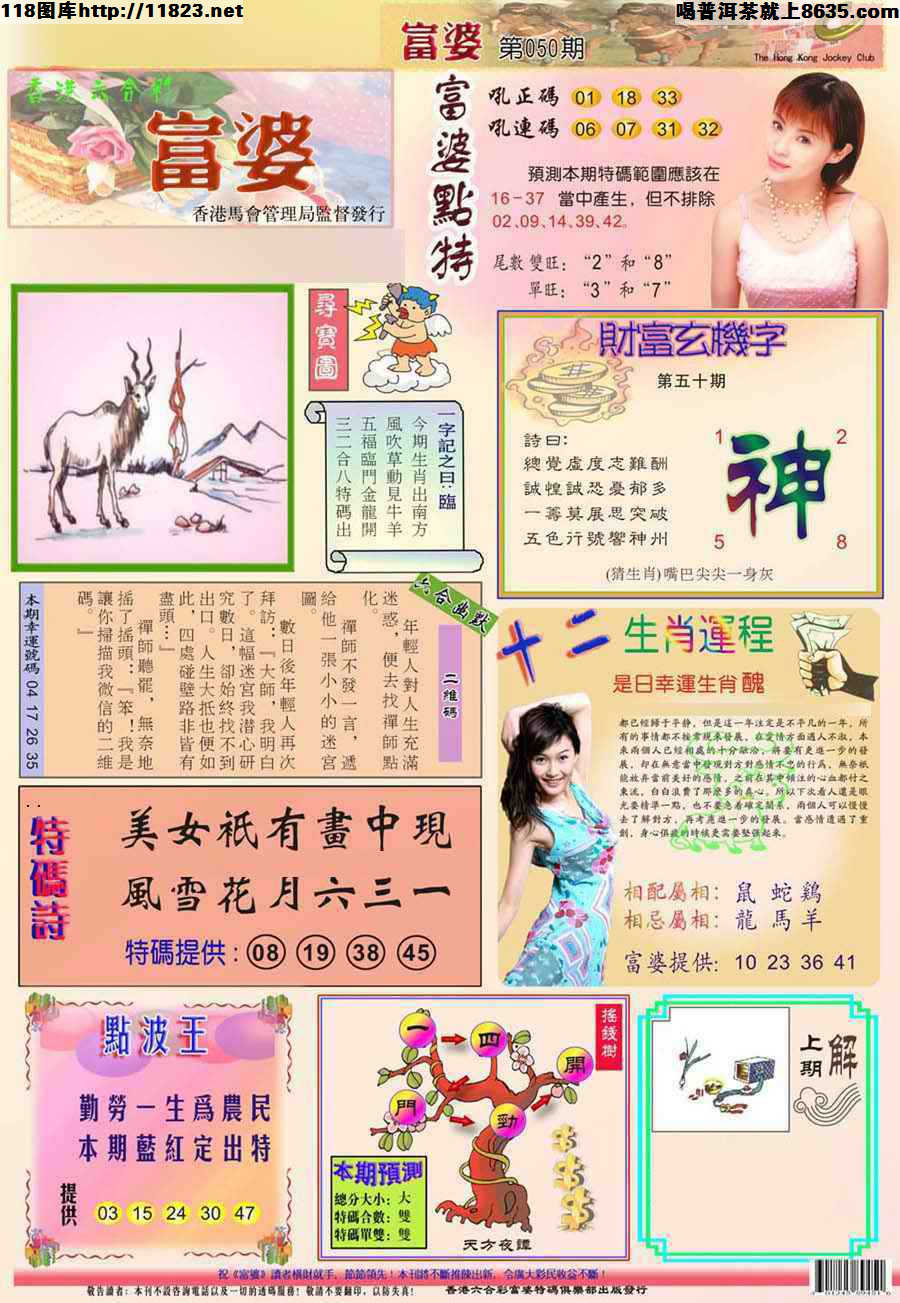 118图库http://11823.net
喝普洱茶就上8635.com
富婆 第050期
The Hong Kong Jockey Club
香港六合彩
富婆
香港馬會管理局監督發行
富婆點特
吼正碼 01 18 33
吼連碼 06 07 31 32
預測本期特碼範圍應該在
16-37 當中產生，但不排除
02、09、14、39、42。
尾數雙旺：“2”和“8”
單旺：“3”和“7”
尋寶圖
一字記之曰：臨
今期生肖出南方
風吹草動見牛羊
五福臨門金龍開
三二合八特碼出
財富玄機字
第五十期
詩曰：
總覺虛度志難酬
誠惶誠恐憂郁多
一籌莫展思突破
五色行號響神州
1 2
神
5 8
(猜生肖)嘴巴尖尖一身灰
六合幽默
二維碼
年輕人對人生充滿
迷惑，便去找禪師點
化。
禪師不發一言，遞
給他一張小小的迷宮
圖。
數日後年輕人再次
拜訪：『大師，我明白
了。這幅迷宮我潜心研
究數日，卻始終找不到
出口。人生大抵也便如
此，四處碰壁路非皆有
盡頭…』
禪師聽罷，無奈地
搖了搖頭：『笨！我是
讓你掃描我微信的二維
碼。』
本期幸運號碼 04 17 26 35
十二生肖運程
是日幸運生肖 醜
都已經歸于平静，但是這一年注定是不平凡的一年，所
有的事情都不按常規来發展，在愛情方面遇人不淑，本
來兩個人已經相處的十分融洽，將要有更進一步的發
展，却在無意當中發現對方對感情不忠的行爲，無奈祇
能放弃當前美好的感情，之前在其中傾注的心血都付之
東流，白白浪費了那麼多的真心。所以下次看人還是眼
光要精準一點，也不要急着確定關系，兩個人可以慢慢
去了解對方，再考慮進一步的發展。當感情遭遇了重
創，身心俱疲的時候更需要堅强起來。
相配屬相：鼠 蛇 鷄
相忌屬相：龍 馬 羊
富婆提供：10 23 36 41
特碼詩
美女祇有畫中現
風雪花月六三一
特碼提供：08 19 38 45
點波王
勤勞一生爲農民
本期藍紅定出特
提供 03 15 24 30 47
搖錢樹
一 四 開
門 勁
本期預測
總分大小：大
特碼合數：雙
特碼單雙：雙
天方夜譚
上期解
祝《富婆》讀者橫財就手，節節領先！本刊將不斷推陳出新，令廣大彩民收益不斷！
敬告讀者：本刊不設咨詢電話以及一切的透碼服務！敬請不要翻印，以防失真！
香港六合彩富婆特碼俱樂部出版發行